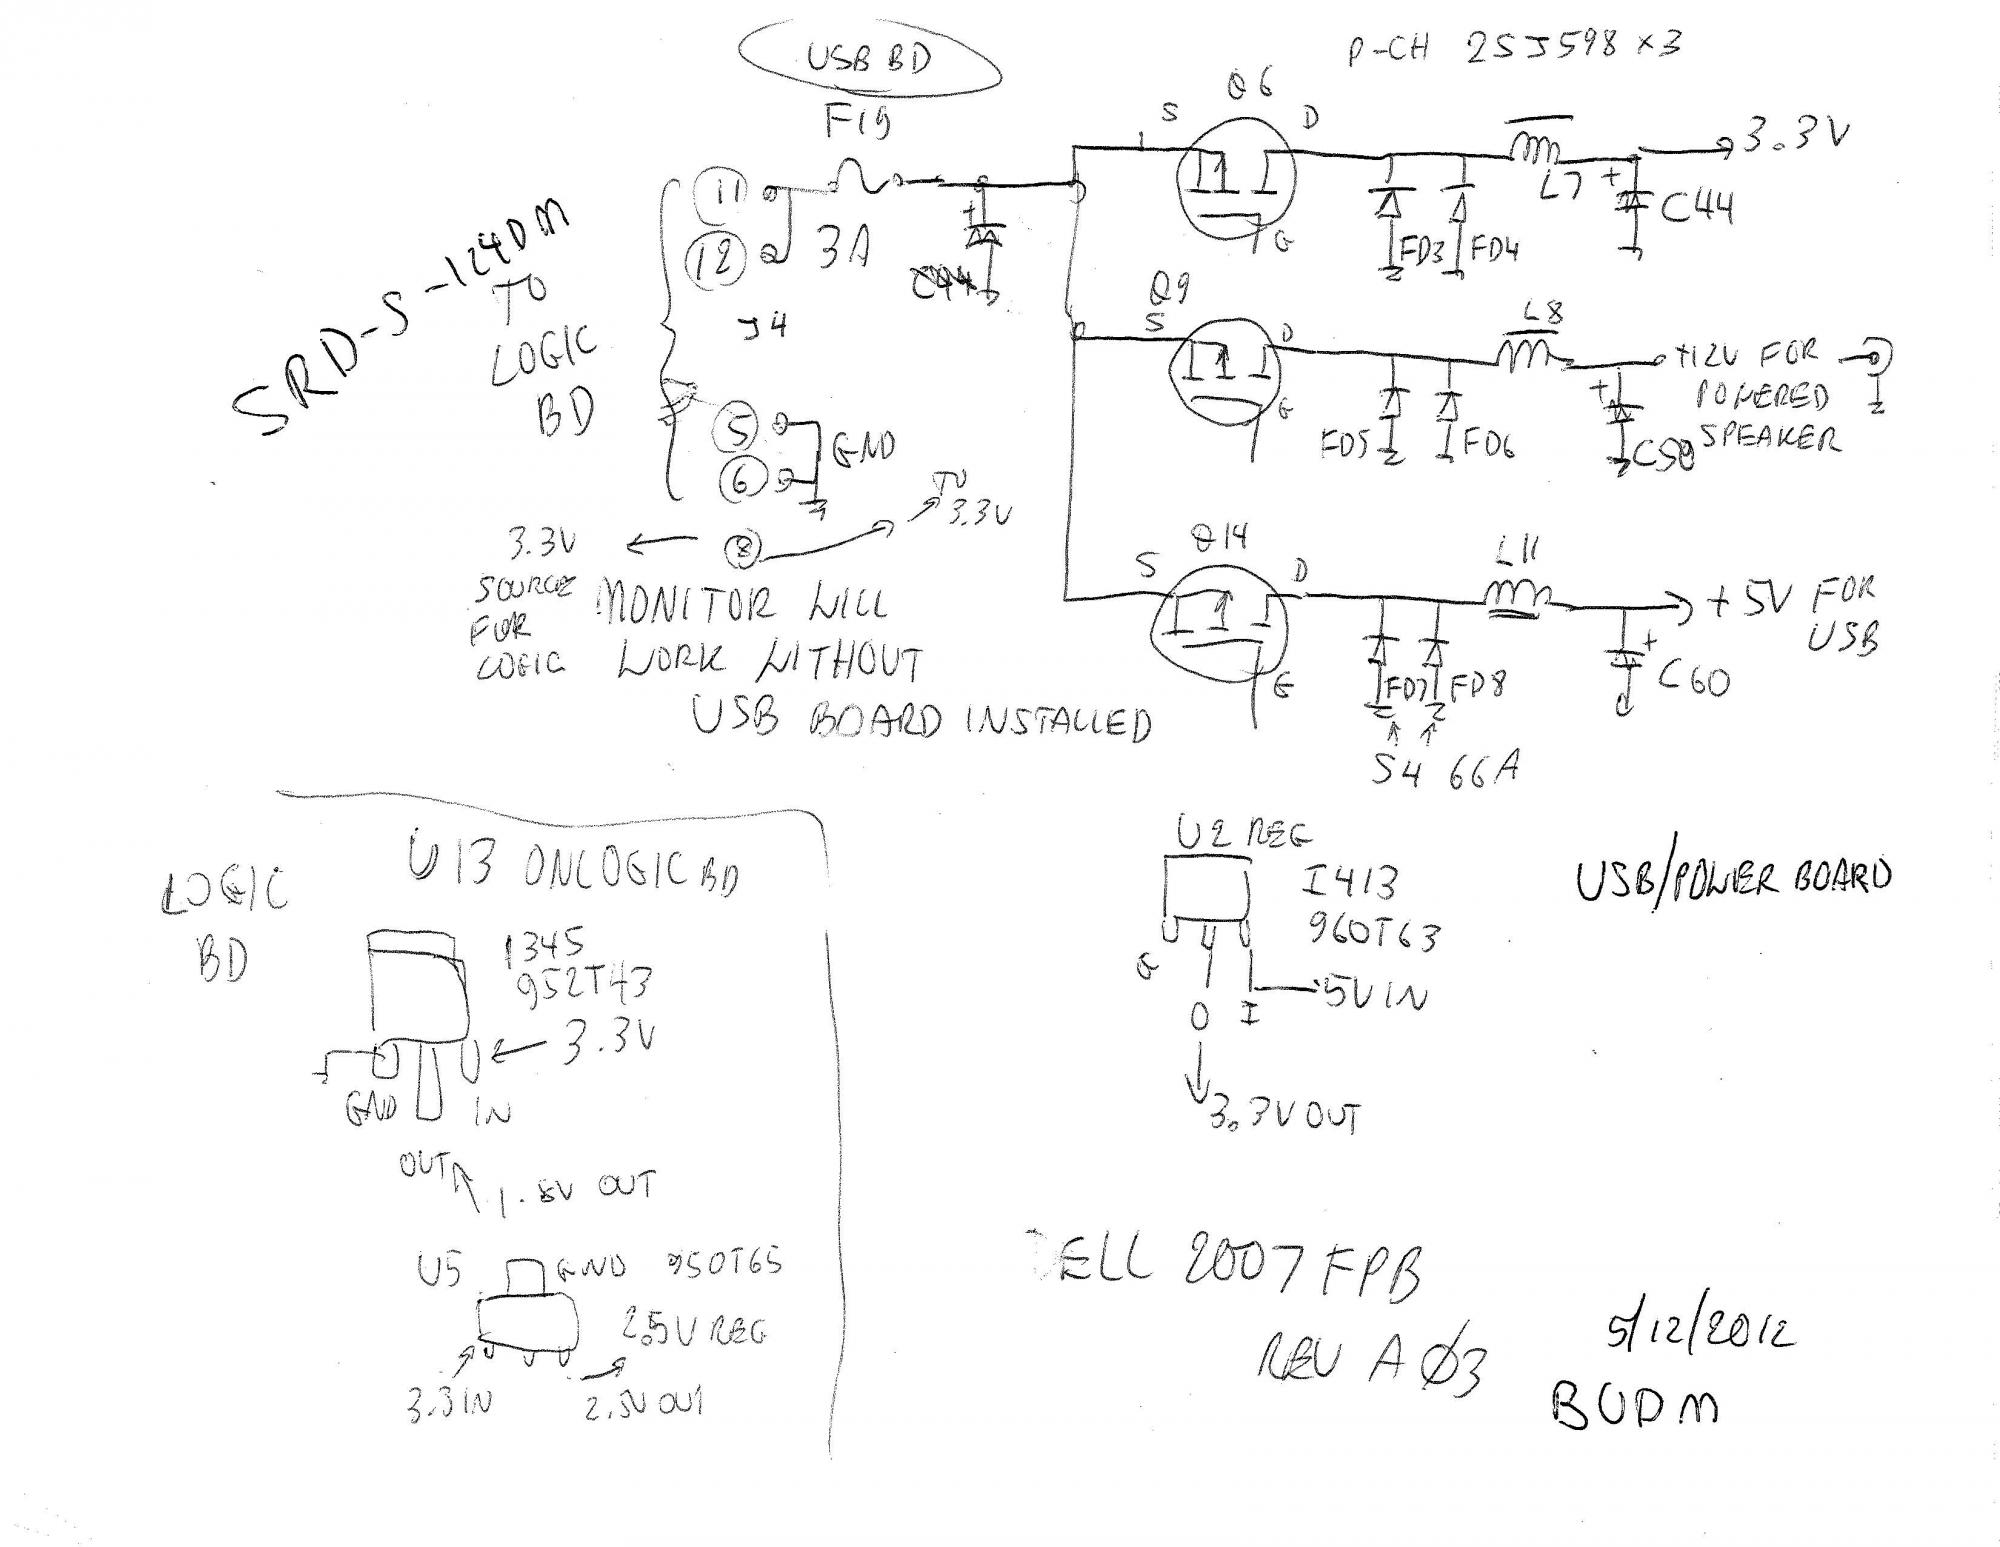 USB BD
P-CH 2SJ598 x3
F19
3A
11
12
J4
5
6
GND
8
TO
3.3V
SRD-S-124DM
TO
LOGIC
BD
3.3V
SOURCE
FOR
LOGIC
MONITOR WILL
WORK WITHOUT
USB BOARD INSTALLED
Q6
S
D
G
L7
3.3V
+
+
C44
FD3
FD4
Q9
S
D
G
L8
+12V FOR
POWERED
SPEAKER
+
C50
FD5
FD6
Q14
S
D
G
L11
+5V FOR
USB
+
C60
FD7
FD8
S4 66A
LOGIC
BD
U13 ON LOGIC BD
1345
952T43
3.3V
GND
IN
OUT
OUT
U5
GND
950T65
2.5V REG
3.3IN
2.5V OUT
U2 REG
I413
960T63
G
O
I
5V IN
3.3V OUT
USB/POWER BOARD
DELL 2007 FPB
REV A03
5/12/2012
BUDM